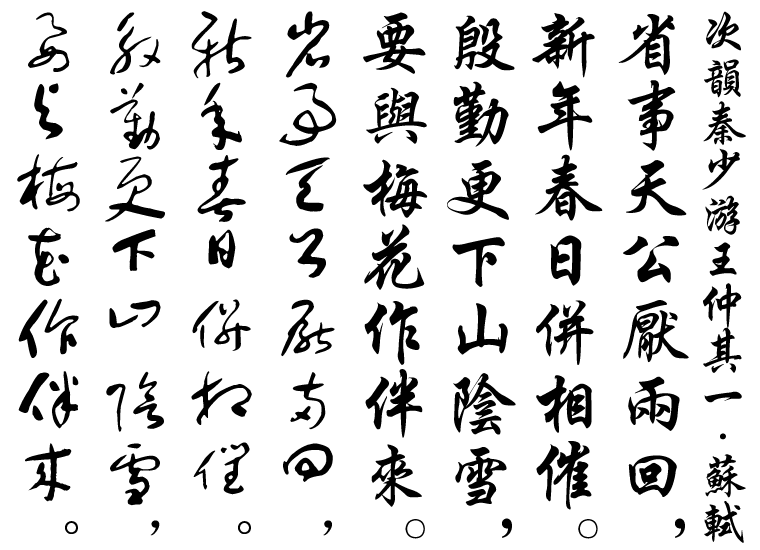 次韻秦少游王仲其一・蘇軾
省事天公厭兩回，
新年春日併相催。
殷勤更下山陰雪，
要與梅花作伴來。
省事天公厭兩回，
新年春日併相催。
殷勤更下山陰雪，
要與梅花作伴來。